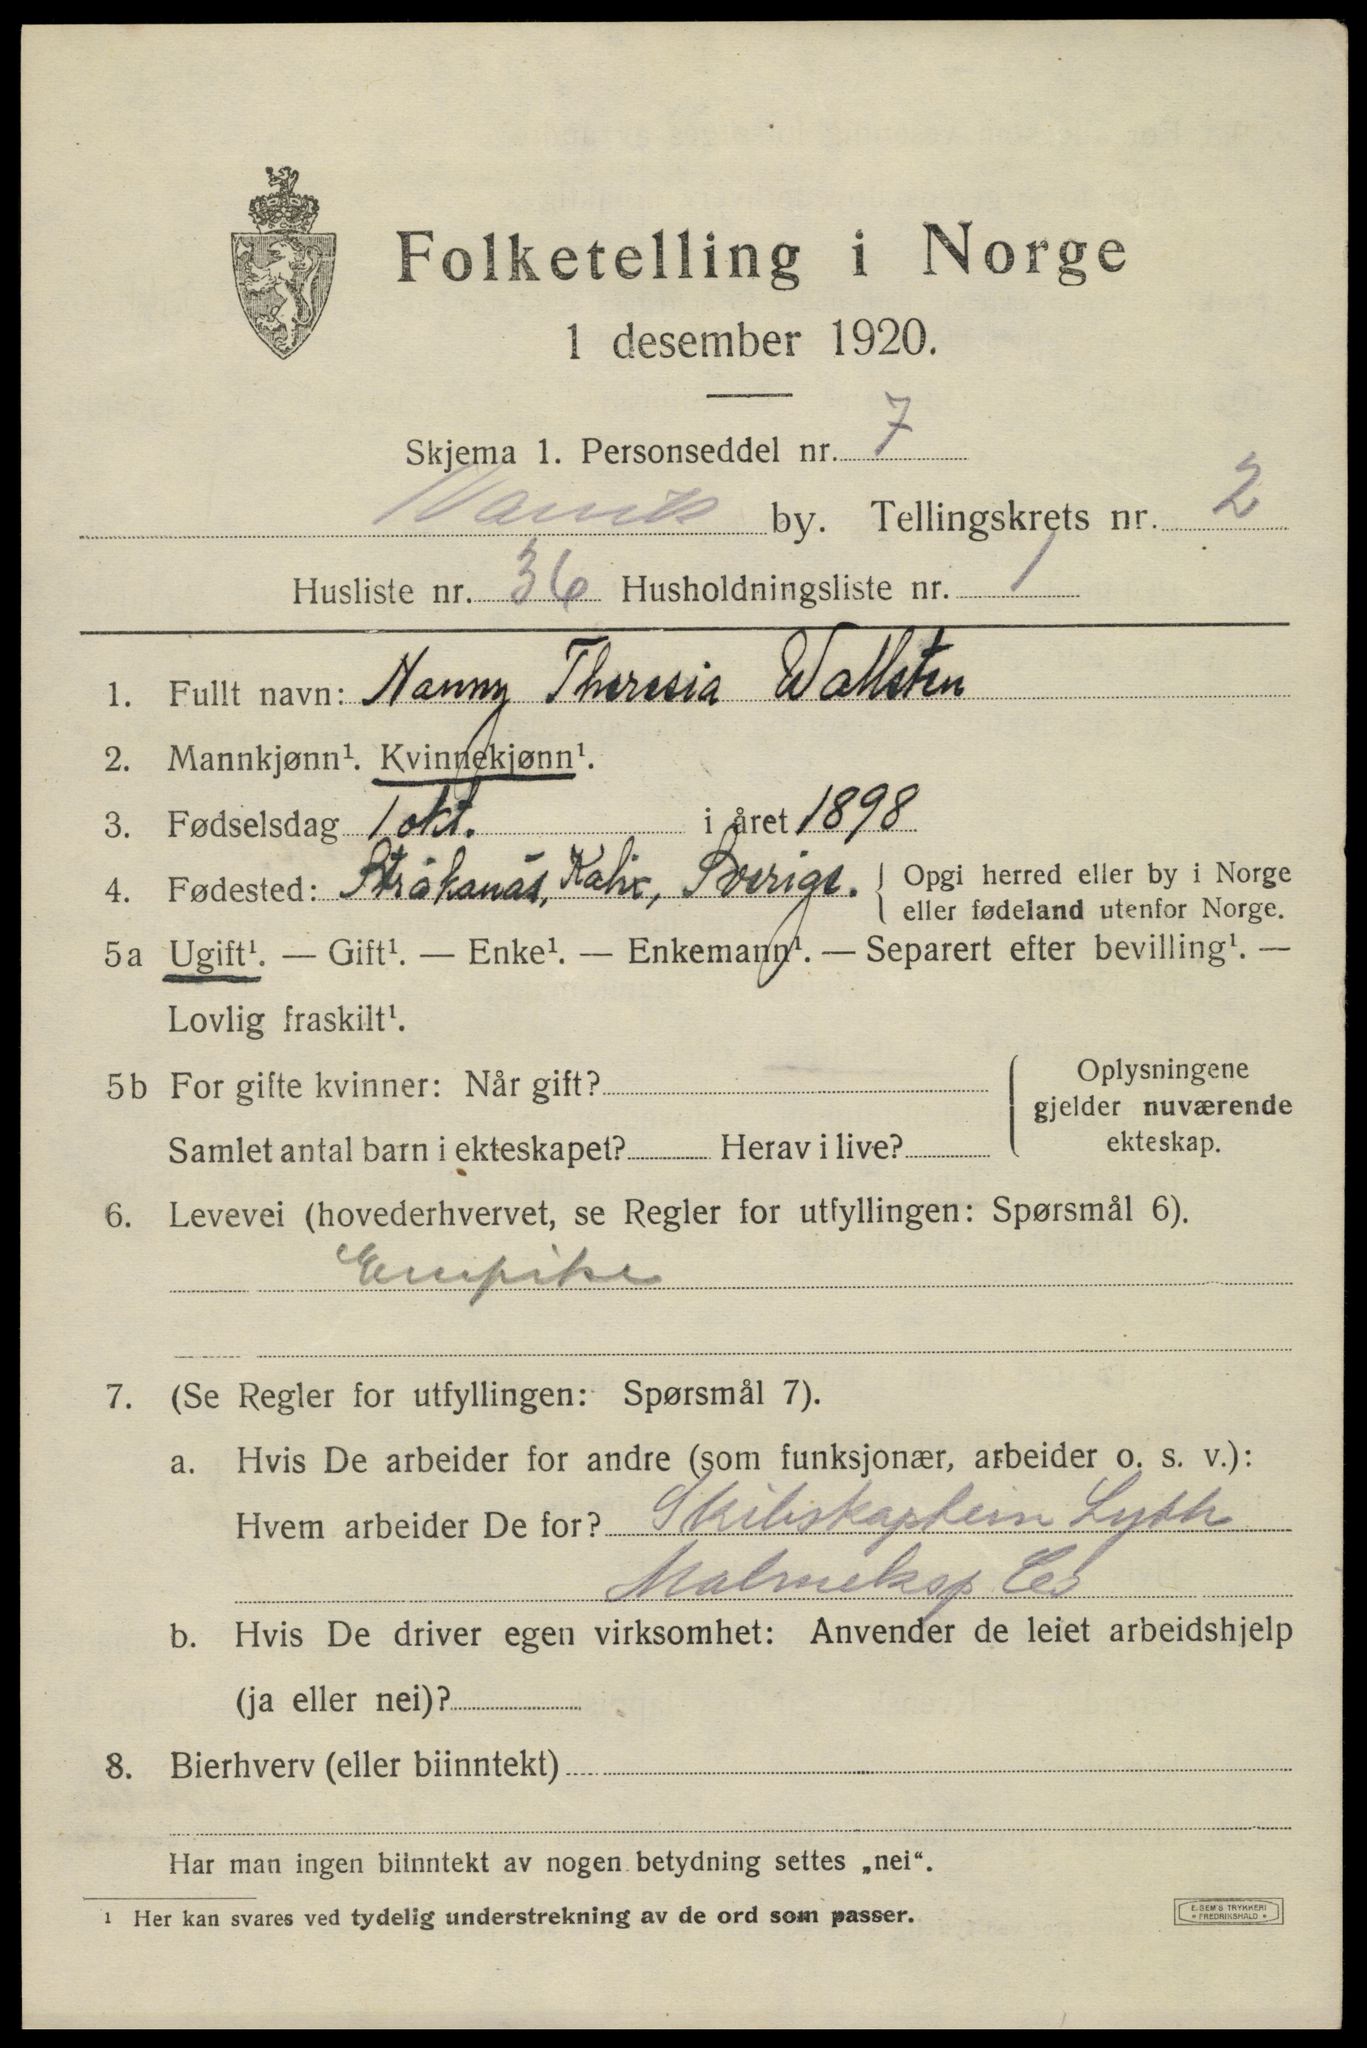 Folketelling i Norge
1 desember 1920.
Skjema 1. Personseddel nr. 7
Narvik by. Tellingskrets nr. 2
Husliste nr. 36 Husholdningsliste nr. 1
1. Fullt navn: Nanny Theresia Wallsten
2. Mannkjønn¹. Kvinnekjønn¹.
3. Fødselsdag 1 okt. i året 1898
4. Fødested: Stråkanäs, Kalix, Sverige. Opgi herred eller by i Norge
eller fødeland utenfor Norge.
5a Ugift¹. — Gift¹. — Enke¹. — Enkemann¹. — Separert efter bevilling¹. —
Lovlig fraskilt¹.
5b For gifte kvinner: Når gift?
Samlet antal barn i ekteskapet? Herav i live?
Oplysningene
gjelder nuværende
ekteskap.
6. Levevei (hovederhvervet, se Regler for utfyllingen: Spørsmål 6).
Enepike
7. (Se Regler for utfyllingen: Spørsmål 7).
a. Hvis De arbeider for andre (som funksjonær, arbeider o. s. v.):
Hvem arbeider De for? Skibskaptein Lyth
Malmeksp Co
b. Hvis De driver egen virksomhet: Anvender de leiet arbeidshjelp
(ja eller nei)?
8. Bierhverv (eller biinntekt)
Har man ingen biinntekt av nogen betydning settes „nei“.
¹ Her kan svares ved tydelig understrekning av de ord som passer.
E. SEM'S TRYKKERI
* FREDRIKSHALD *